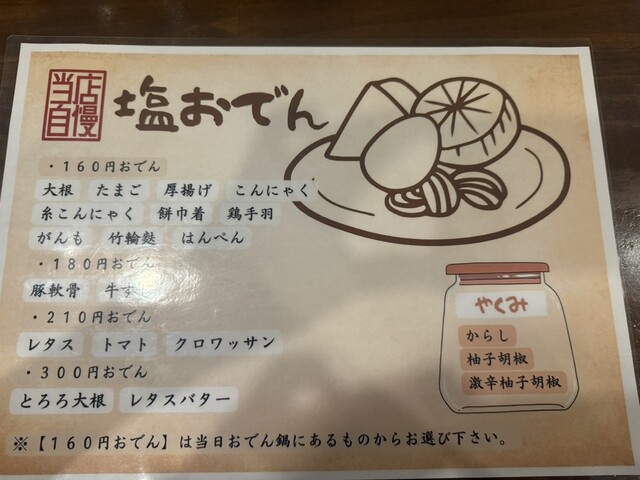 当店自慢
塩おでん
・160円おでん
大根 たまご 厚揚げ こんにゃく
糸こんにゃく 餅巾着 鶏手羽
がんも 竹輪麩 はんぺん
・180円おでん
豚軟骨 牛す
・210円おでん
レタス トマト クロワッサン
・300円おでん
とろろ大根 レタスバター
やくみ
からし
柚子胡椒
激辛柚子胡椒
※【160円おでん】は当日おでん鍋にあるものからお選び下さい。